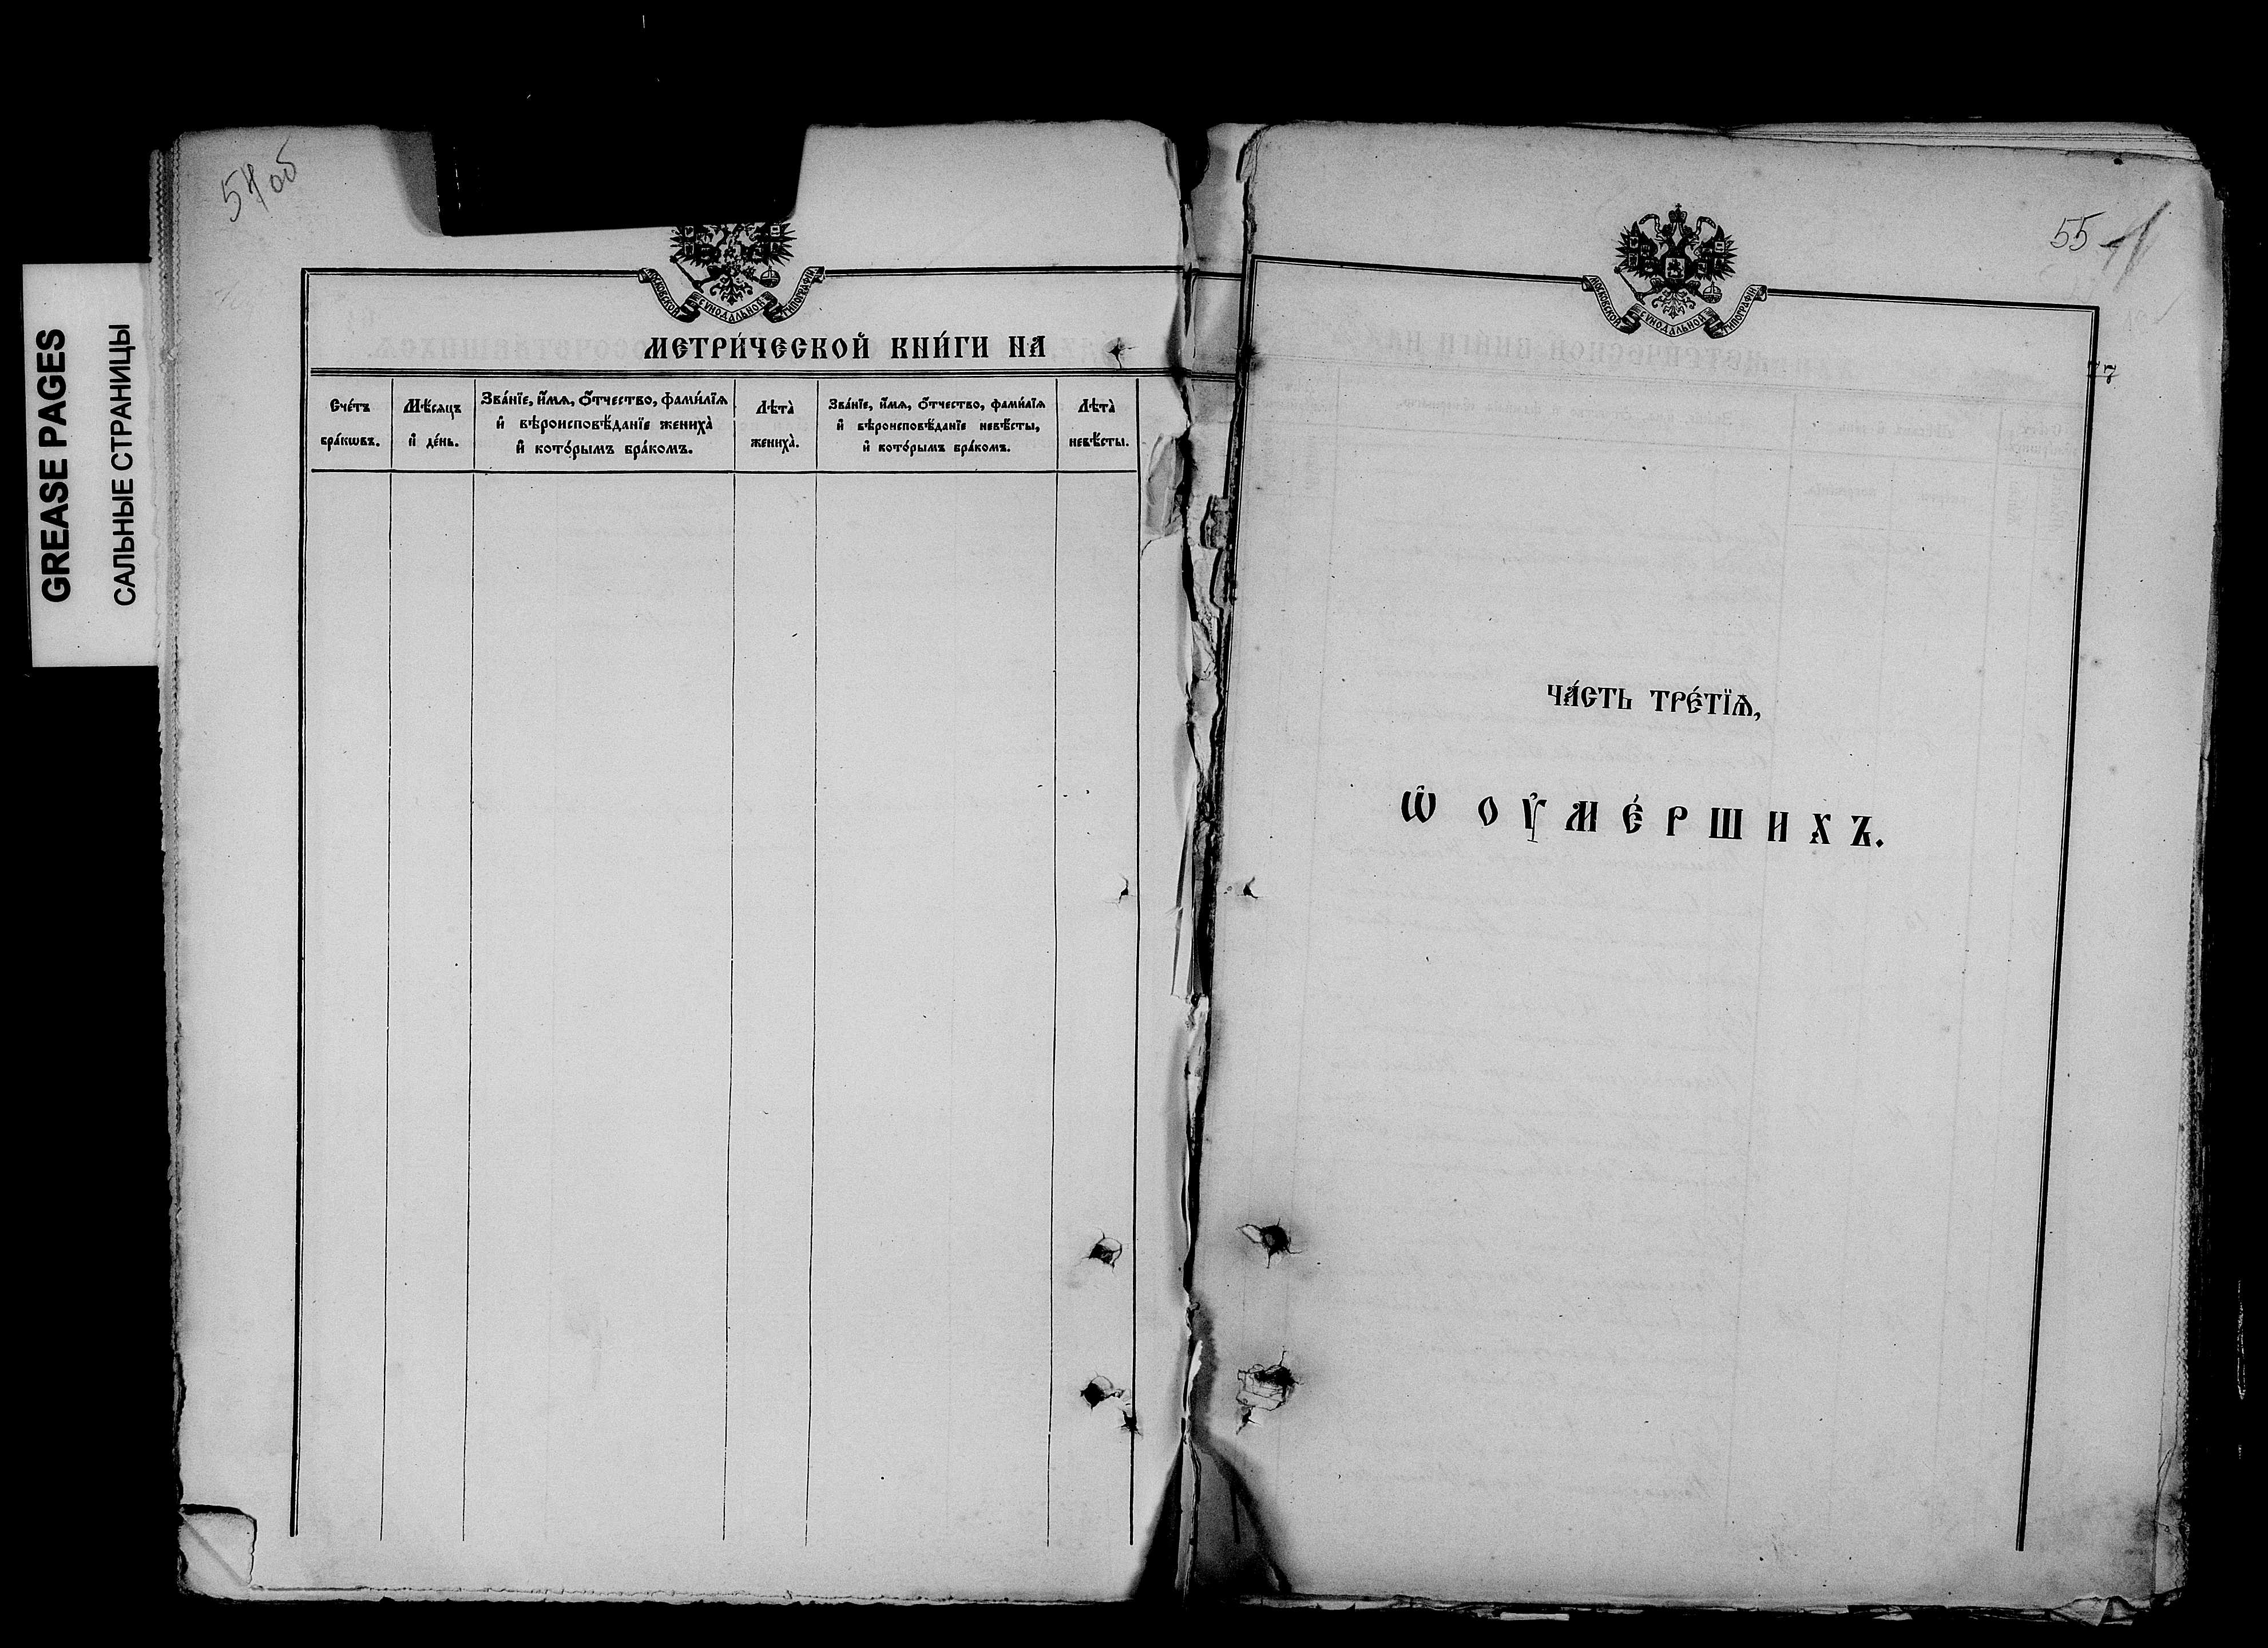 GREASE PAGES
САЛЬНЫЕ СТРАНИЦЫ
54 об
МОСКОВСКОЙ СѴНОДАЛЬНОЙ ТИПОГРАФІИ
МЕТРИ́ЧЕСКОЙ КНИ́ГИ НА
Сче́тъ бра́кѡвъ.
Мѣ́сяцъ и҆ де́нь.
Зва́нїе, и҆́мѧ, ѻ҆́тчество, фами́лїѧ и҆ вѣроисповѣ́данїе жениха̀ и҆ кото́рымъ бра́комъ.
Лѣта̀ жениха̀.
Зва́нїе, и҆́мѧ, ѻ҆́тчество, фами́лїѧ и҆ вѣроисповѣ́данїе невѣ́сты, и҆ кото́рымъ бра́комъ.
Лѣта̀ невѣ́сты.
55
МОСКОВСКОЙ СѴНОДАЛЬНОЙ ТИПОГРАФІИ
77
ЧА́СТЬ ТРЕ́ТЇѦ,
Ѡ҆ ОУ҆МЕ́РШИХЪ.